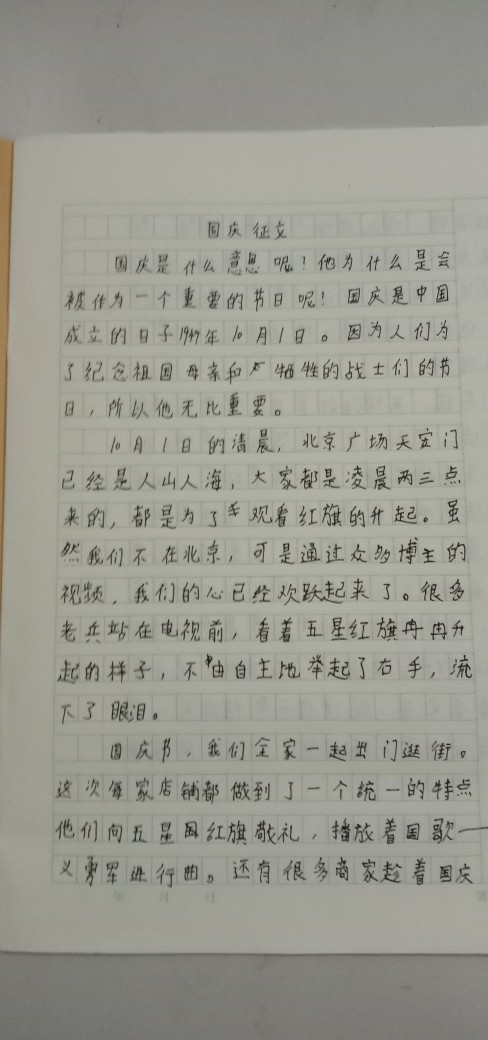 国庆征文
国庆是什么意思呢？他为什么是会
被作为一个重要的节日呢！国庆是中国
成立的日子1949年10月1日。因为人们为
了纪念祖国母亲和牺牲的战士们的节
日，所以他无比重要。
10月1日的清晨，北京广场天安门
已经是人山人海，大家都是凌晨两三点
来的，都是为了观看红旗的升起。虽
然我们不在北京，可是通过众多博主的
视频，我们的心已经欢跃起来了。很多
老兵站在电视前，看着五星红旗冉冉升
起的样子，不由自主地举起了右手，流
下了眼泪。
国庆节，我们全家一起出门逛街。
这次每家店铺都做到了一个统一的特点
他们向五星国红旗敬礼，播放着国歌——
义勇军进行曲。还有很多商家趁着国庆
年 月 日